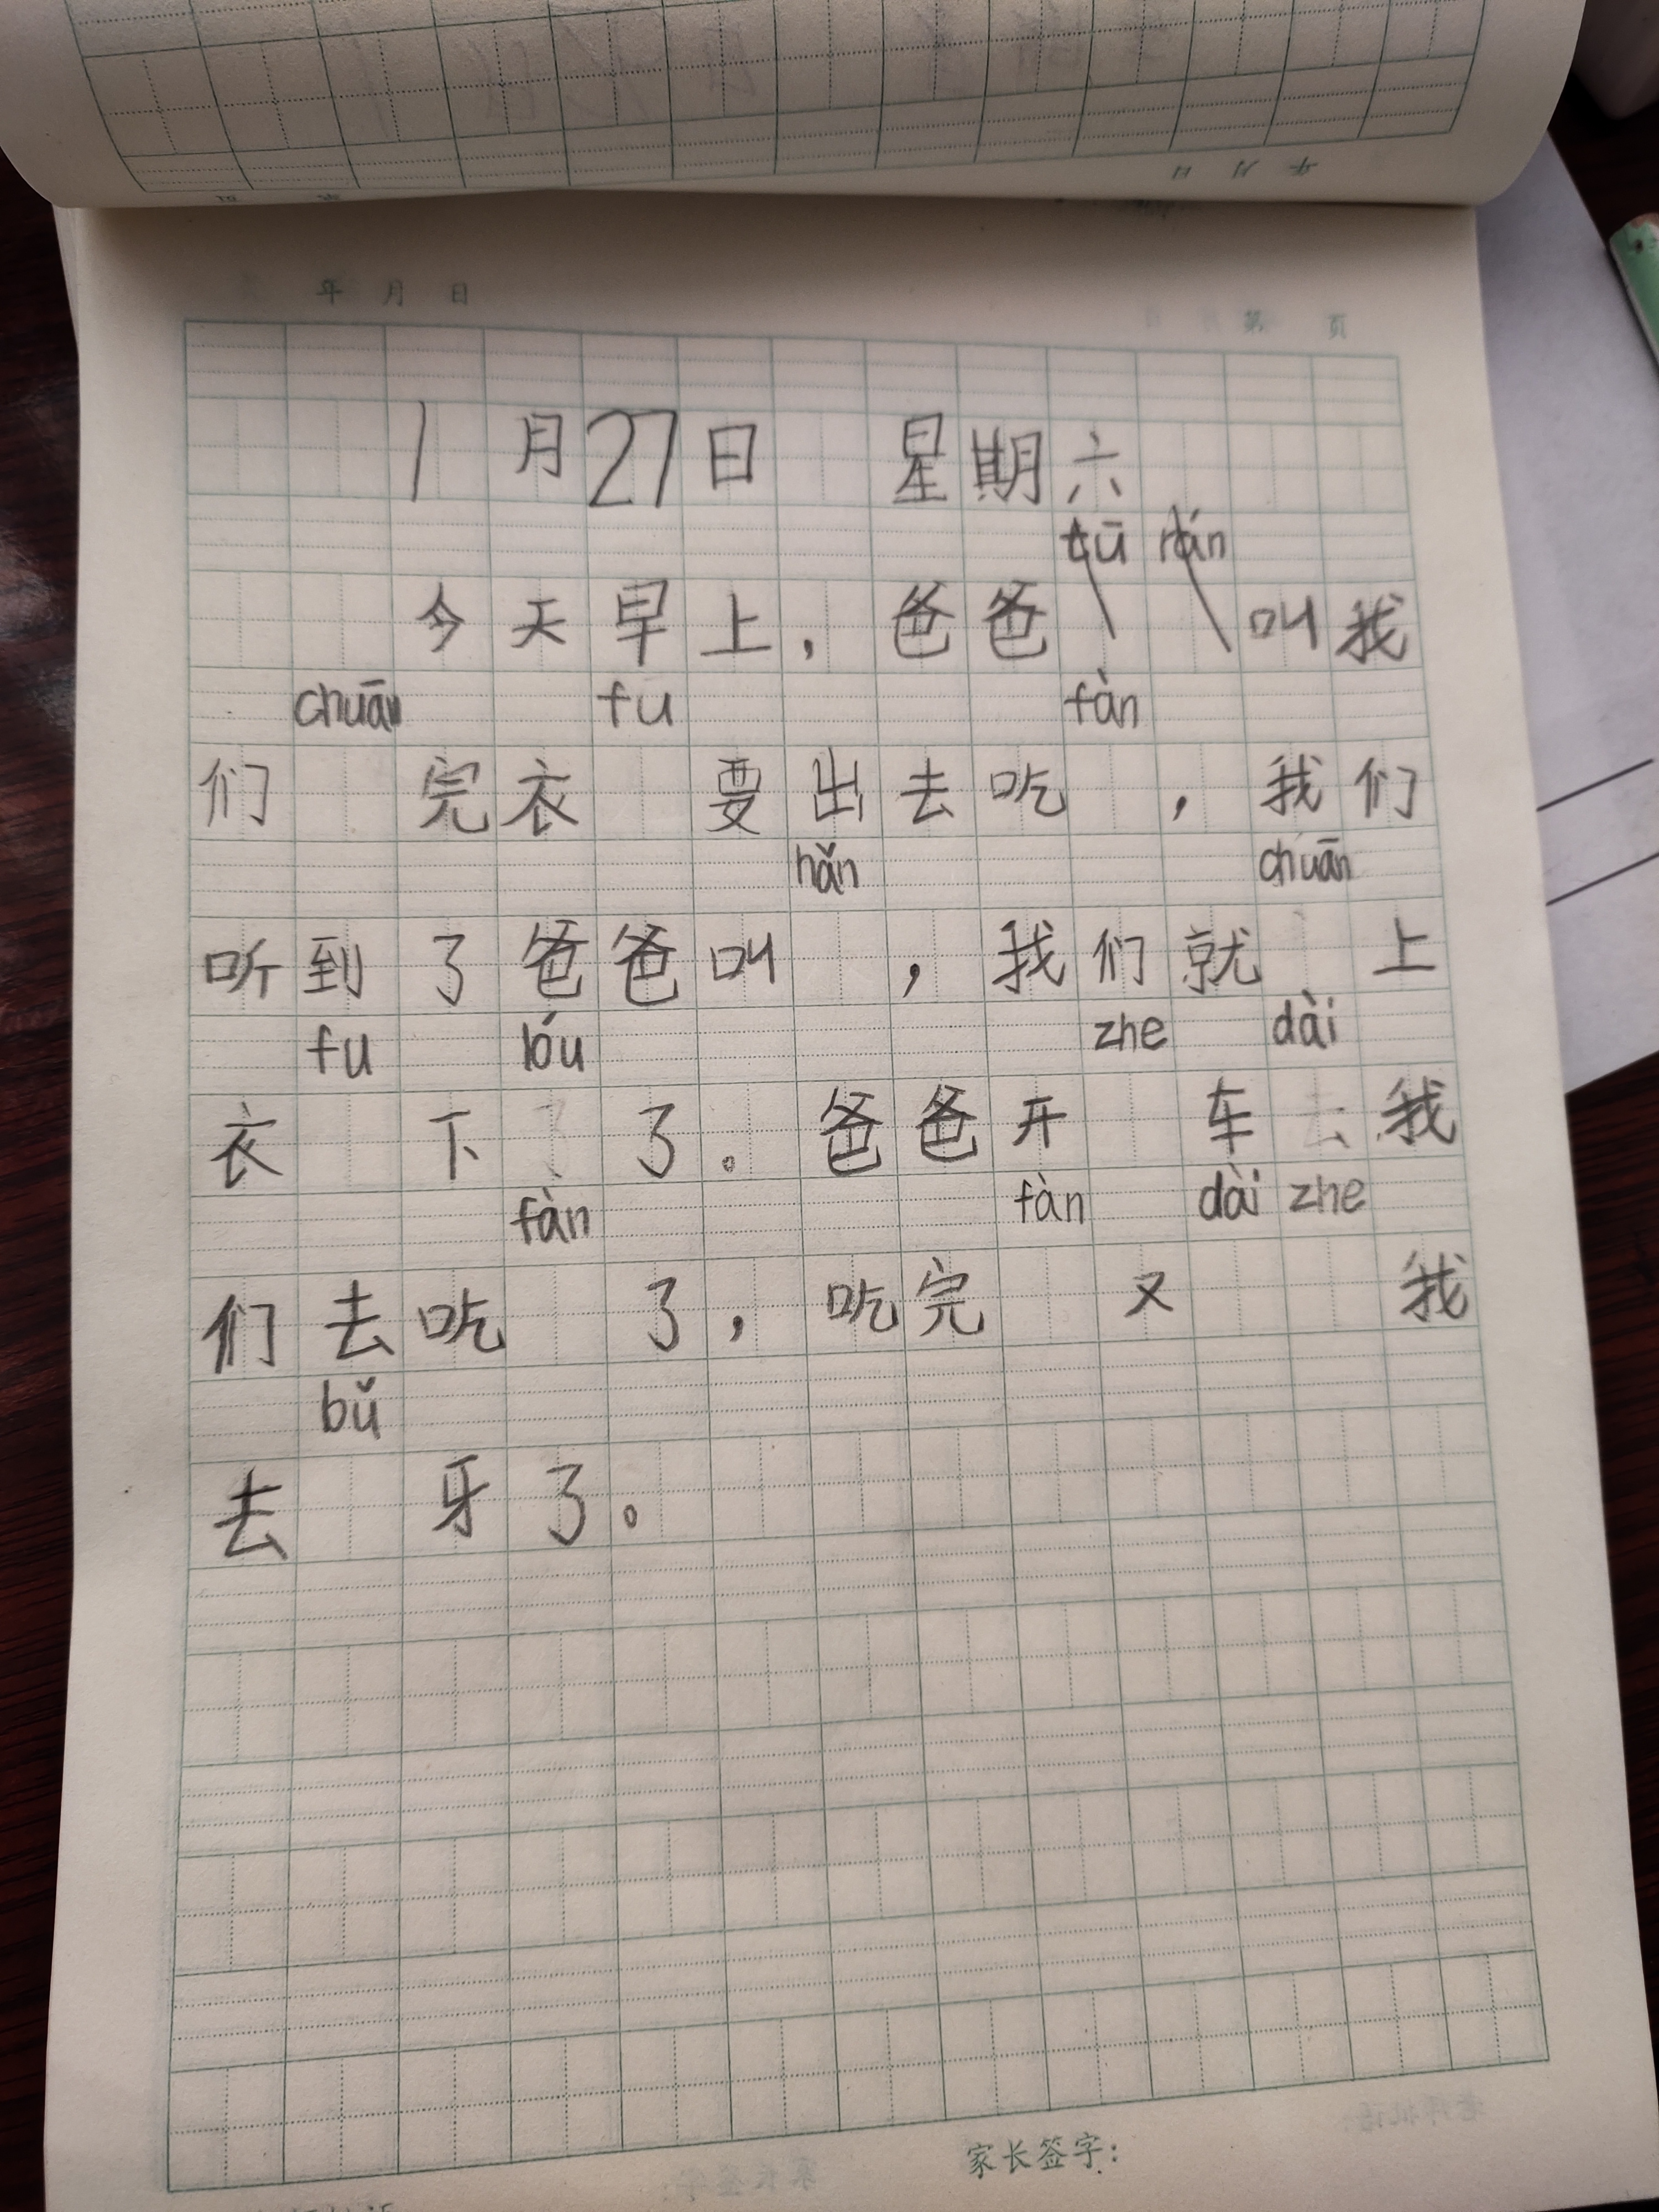 年 月 日
第 页
1月27日 星期六
tū rán
今天早上，爸爸 叫我
chuān fu fàn
们 完衣 要出去吃 ，我们
hǎn chuān
听到了爸爸叫 ，我们就 上
fu lóu zhe dài
衣 下 了。爸爸开 车 我
fàn fàn dài zhe
们去吃 了，吃完 又 我
bǔ
去 牙了。
家长签字：